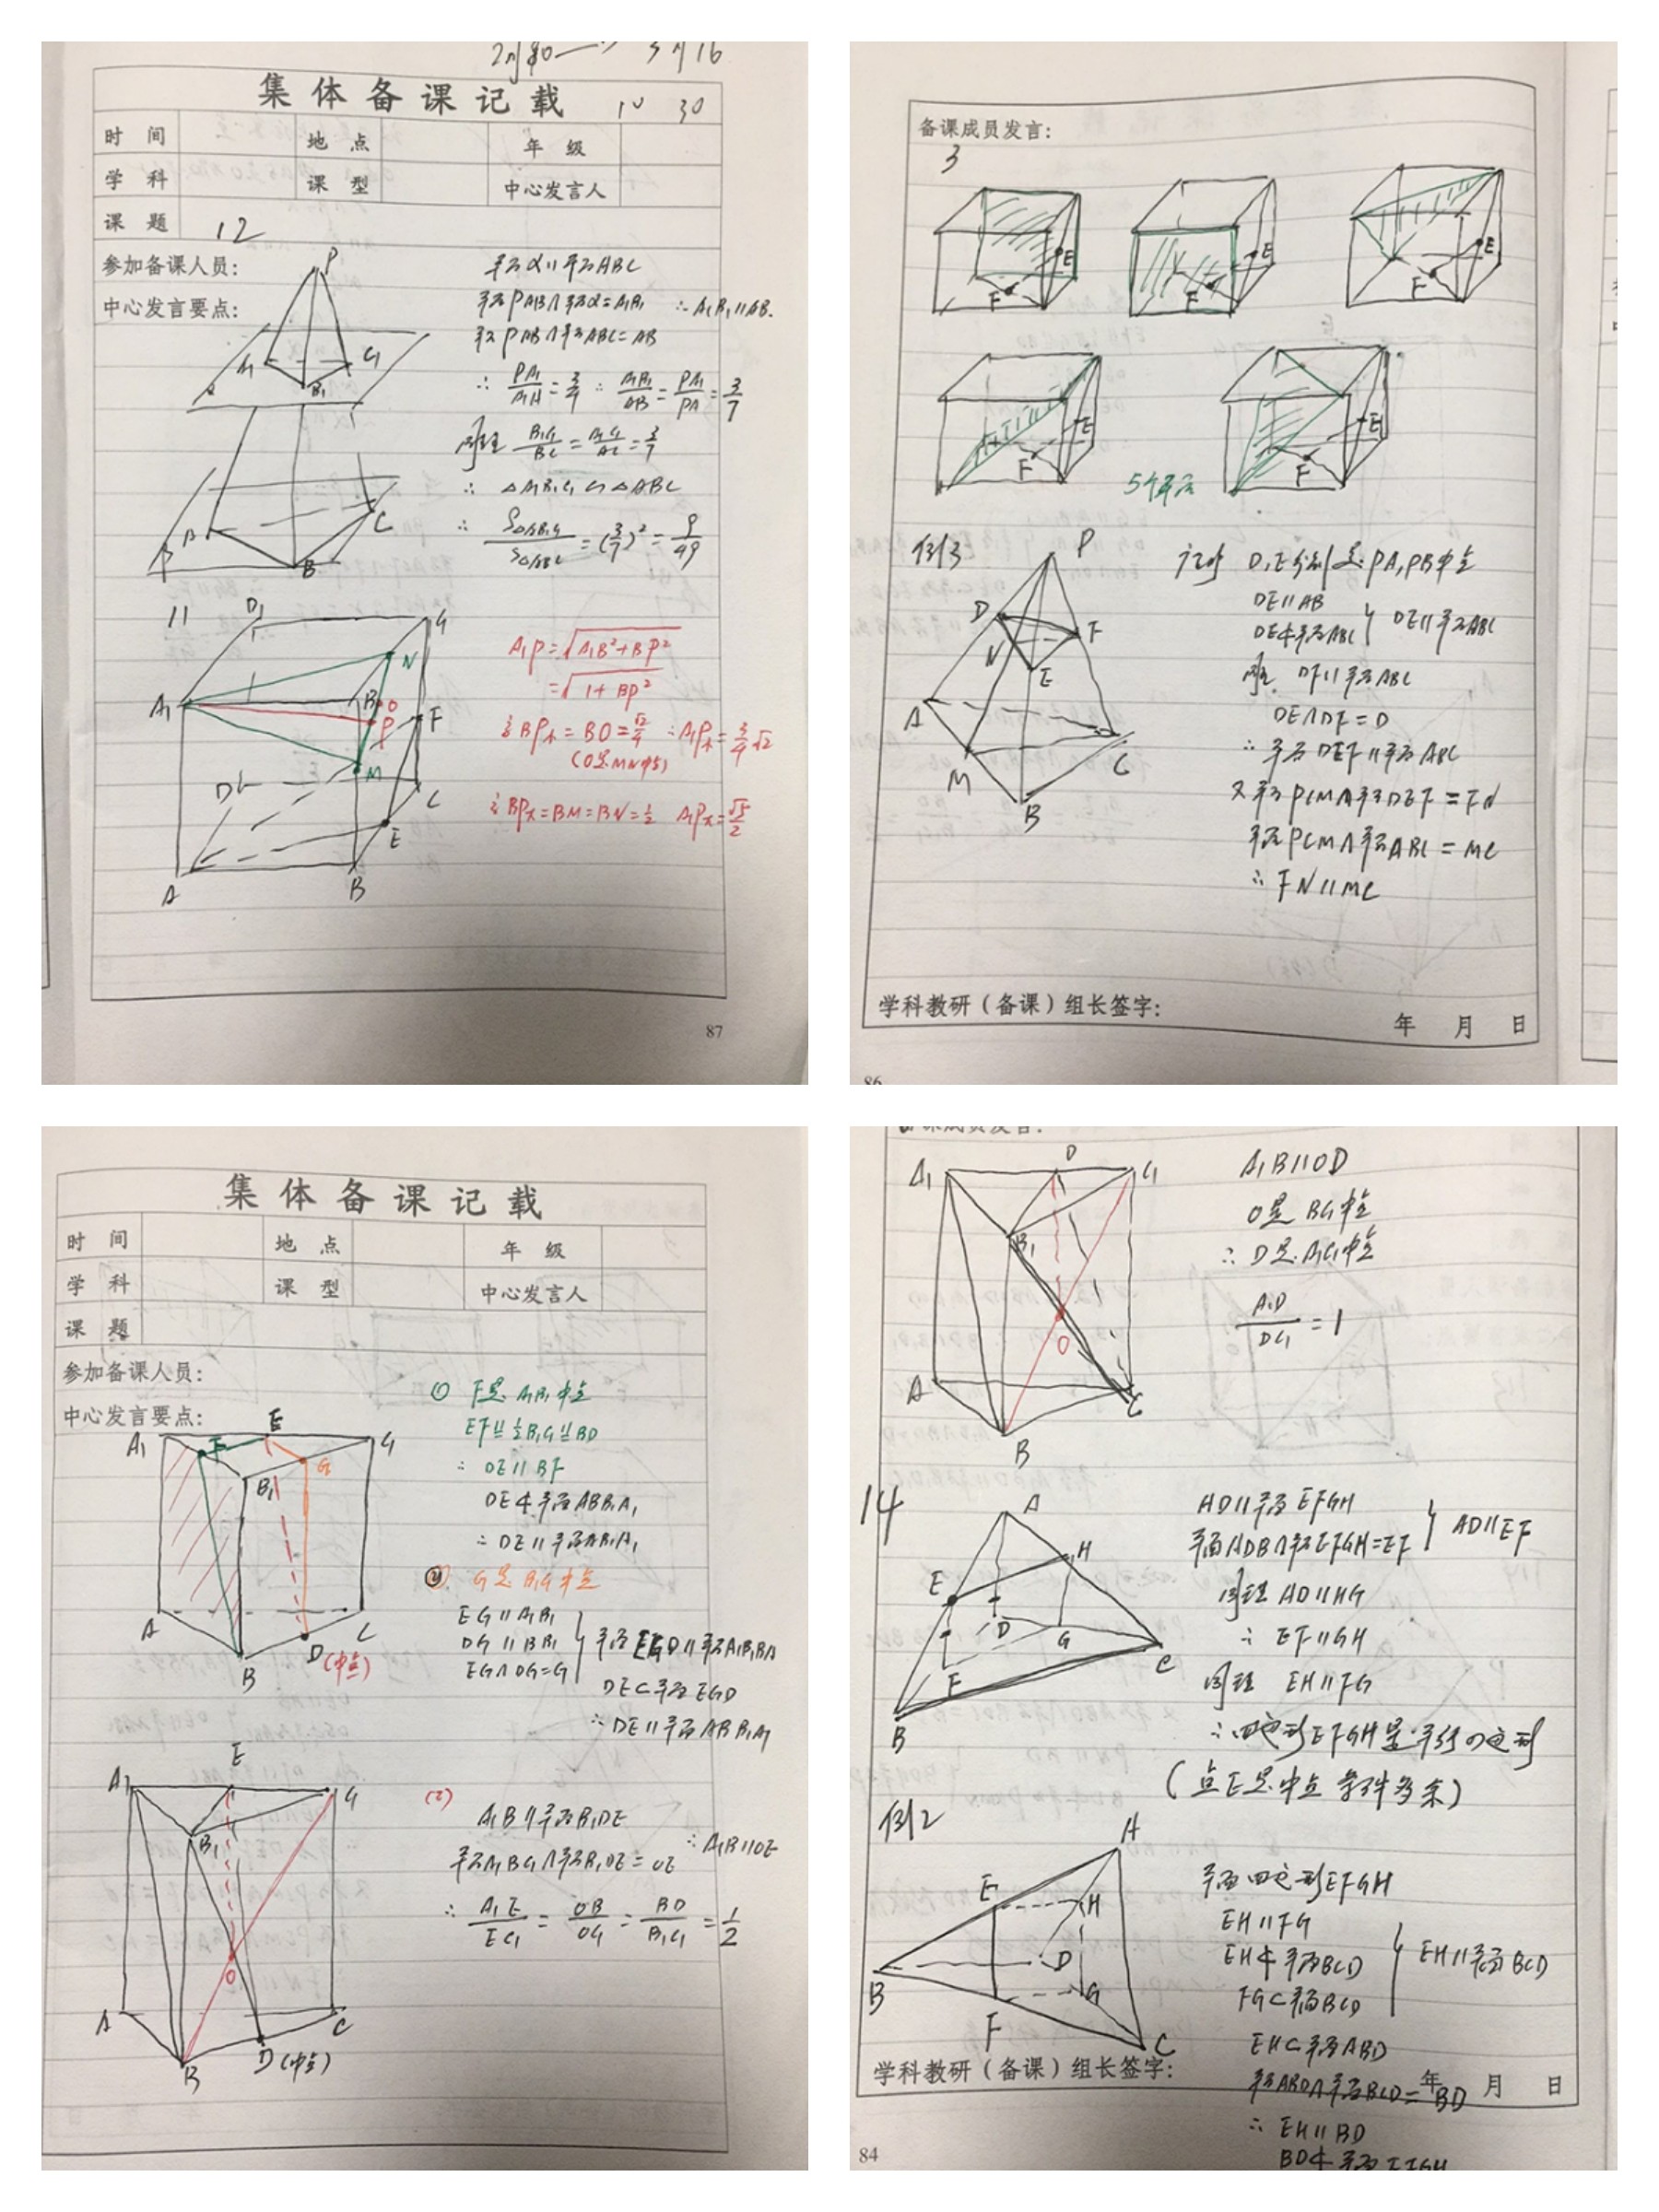 集体备课记载
10 30
时间 地点 年级
学科 课型 中心发言人
课题
12
参加备课人员：
中心发言要点：
P
A₁ C₁
B₁
A C
β B
平面α∥平面ABC
平面PAB∩平面α=A₁B₁ ∴A₁B₁∥AB.
平面PAB∩平面ABC=AB
∵ PA₁/A₁A=3/4 ∴ A₁B₁/AB=PA₁/PA=3/7
同理 B₁C₁/BC=A₁C₁/AC=3/7
∴ △A₁B₁C₁∽△ABC
∴ S△A₁B₁C₁/S△ABC=(3/7)²=9/49
11
D₁ C₁
N
A₁ B₁ O
P F
M
D C
E
A B
A₁P=√A₁B²+BP²
=√1+BP²
BP小=BO=√2/4 ∴A₁P小=3/4√2
(O是MN中点)
BP大=BM=BN=1/2 A₁P大=√5/2
87
备课成员发言：
3
E
F
E
F
E
F
E
F
E
F
5个平面
例3
P
D F
N E
A
M C
B
证明 D,E分别是PA,PB中点
DE∥AB
DE⊄平面ABC } DE∥平面ABC
同理 DF∥平面ABC
DE∩DF=D
∴平面DEF∥平面ABC
又平面PCM∩平面DEF=FN
平面PCM∩平面ABC=MC
∴FN∥MC
学科教研（备课）组长签字：
年 月 日
86
集体备课记载
时间 地点 年级
学科 课型 中心发言人
课题
参加备课人员：
中心发言要点：
E
A₁ F C₁
G
B₁
A C
B D(中点)
① F是A₁B₁中点
EF∥=1/2B₁C₁∥=BD
∴ DE∥BF
DE⊄平面ABB₁A₁
∴DE∥平面ABB₁A₁
② G是B₁C₁中点
EG∥A₁B₁
DG∥BB₁
EG∩DG=G } 平面EGD∥平面A₁B₁BA
DE⊂平面EGD
∴DE∥平面ABB₁A₁
E
A₁ C₁
B₁
O
A C
B D(中点)
(2)
A₁B∥平面B₁DE
平面A₁BC₁∩平面B₁DE=OE ∴A₁B∥OE
∴ A₁E/EC₁=OB/OC₁=BD/B₁C₁=1/2
备课成员发言：
D
A₁ C₁
B₁
O
A C
B
A₁B∥OD
O是BC₁中点
∴D是A₁C₁中点
A₁D/DC₁=1
14
A
E H
D G
F C
B
AD∥平面EFGH
平面ADB∩平面EFGH=EF } AD∥EF
同理 AD∥HG
∴ EF∥GH
同理 EH∥FG
∴四边形EFGH是平行四边形
(点E是中点 条件多余)
例2
A
E H
D
B G
F C
平面四边形EFGH
EH∥FG
EH⊄平面BCD
FG⊂平面BCD } EH∥平面BCD
EH⊂平面ABD
平面ABD∩平面BCD=BD
∴ EH∥BD
BD⊄平面EFGH
学科教研（备课）组长签字：
年 月 日
84